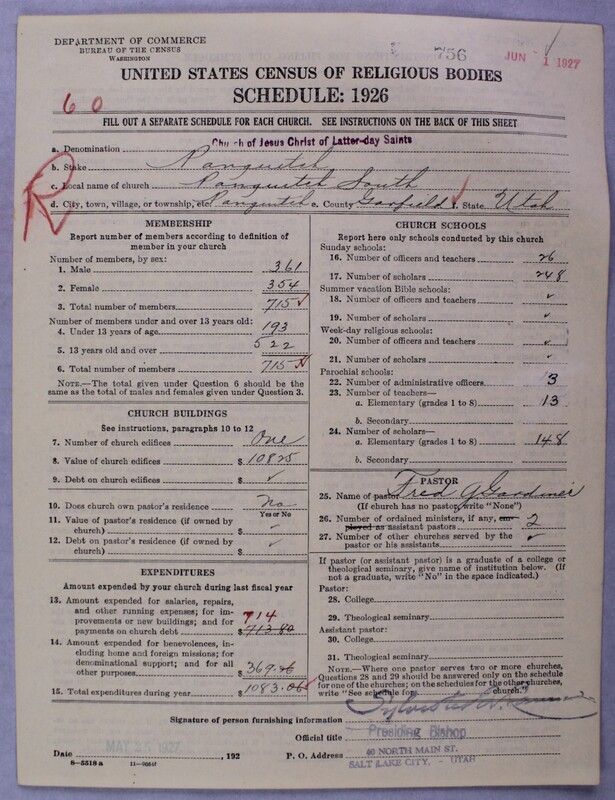 DEPARTMENT OF COMMERCE
BUREAU OF THE CENSUS
WASHINGTON
756
JUN 1 1927
UNITED STATES CENSUS OF RELIGIOUS BODIES
SCHEDULE: 1926
60
FILL OUT A SEPARATE SCHEDULE FOR EACH CHURCH. SEE INSTRUCTIONS ON THE BACK OF THIS SHEET
R
a. Denomination Church of Jesus Christ of Latter-day Saints
b. Stake Panguitch
c. Local name of church Panguitch South
d. City, town, village, or township, etc. Panguitch e. County Garfield f. State Utah
MEMBERSHIP
Report number of members according to definition of member in your church
Number of members, by sex:
1. Male 361
2. Female 354
3. Total number of members 715
Number of members under and over 13 years old:
4. Under 13 years of age 193
5. 13 years old and over 522
6. Total number of members 715
NOTE.—The total given under Question 6 should be the same as the total of males and females given under Question 3.
CHURCH BUILDINGS
See instructions, paragraphs 10 to 12
7. Number of church edifices One
8. Value of church edifices $ 10825
9. Debt on church edifices $ ✓
10. Does church own pastor's residence? No
Yes or No
11. Value of pastor's residence (if owned by church) $
12. Debt on pastor's residence (if owned by church) $ ✓
EXPENDITURES
Amount expended by your church during last fiscal year
13. Amount expended for salaries, repairs, and other running expenses; for improvements or new buildings; and for payments on church debt $ 713.80
714
14. Amount expended for benevolences, including home and foreign missions; for denominational support; and for all other purposes $ 369.26
15. Total expenditures during year $ 1083.06
CHURCH SCHOOLS
Report here only schools conducted by this church
Sunday schools:
16. Number of officers and teachers 26
17. Number of scholars 248
Summer vacation Bible schools:
18. Number of officers and teachers ✓
19. Number of scholars ✓
Week-day religious schools:
20. Number of officers and teachers ✓
21. Number of scholars ✓
Parochial schools:
22. Number of administrative officers 3
23. Number of teachers—
a. Elementary (grades 1 to 8) 13
b. Secondary
24. Number of scholars—
a. Elementary (grades 1 to 8) 148
b. Secondary
PASTOR
25. Name of pastor Fred G Gardiner
(If church has no pastor, write "None")
26. Number of ordained ministers, if any, employed as assistant pastors 2
27. Number of other churches served by the pastor or his assistants ✓
If pastor (or assistant pastor) is a graduate of a college or theological seminary, give name of institution below. (If not a graduate, write "No" in the space indicated.)
Pastor:
28. College
29. Theological seminary
Assistant pastor:
30. College
31. Theological seminary
NOTE.—Where one pastor serves two or more churches, Questions 28 and 29 should be answered only on the schedule for one of the churches; on the schedules for the other churches, write "See schedule for church."
Signature of person furnishing information
Official title Presiding Bishop
Date MAY 25 1927, 192 P. O. Address 40 NORTH MAIN ST.
SALT LAKE CITY, - UTAH
8-5518 a